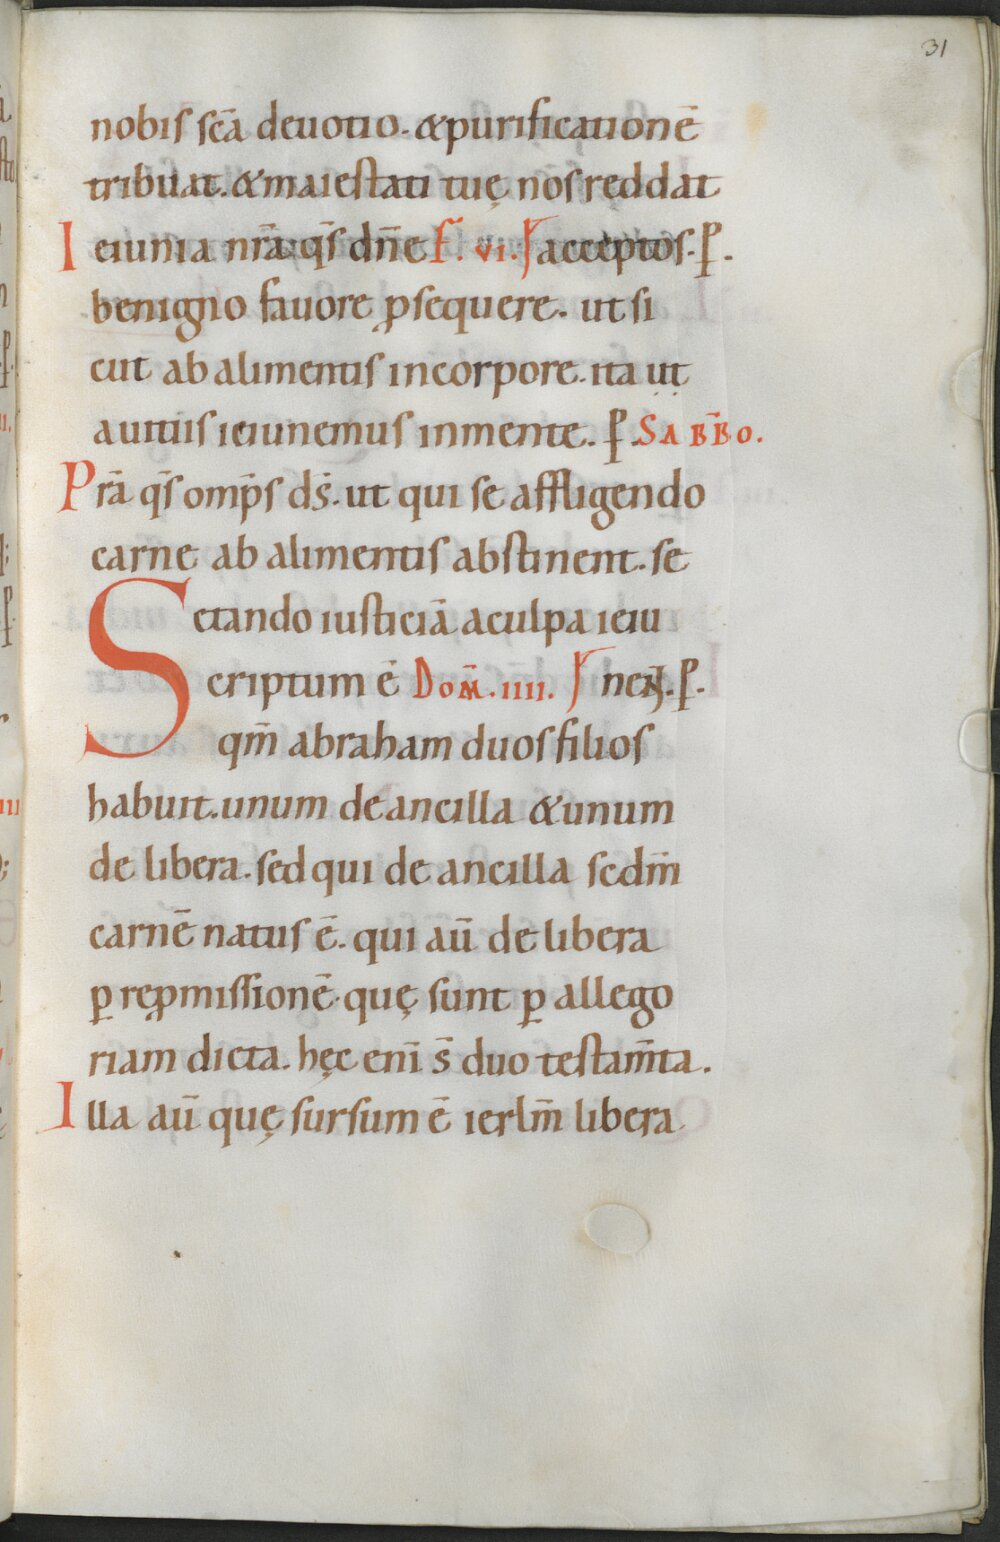 31
nobis scā deuotio. & purificationē
tribuat. & maiestati tuę nos reddat
Ieiunia nr̄a qs̄ dn̄e F̄. VI. acceptos. P.
benigno fauore ꝓsequere. ut si
cut ab alimentis in corpore. ita ut
a uitiis ieiunemus in mente. P. SABB̄O.
Prā qs̄ omp̄s ds̄. ut qui se affligendo
carne ab alimentis abstinent. se
ctando iusticiā a culpa ieiu
Scriptum ē DOM̄. IIII. nent. P.
qm̄ abraham duos filios
habuit. unum de ancilla & unum
de libera. sed qui de ancilla scdm̄
carnē natus ē. qui aū de libera
ꝑ reꝓmissionē. quę sunt ꝑ allego
riam dicta. hęc enī s̄ duo testam̄ta.
Illa aū quę sursum ē ierlm̄ libera